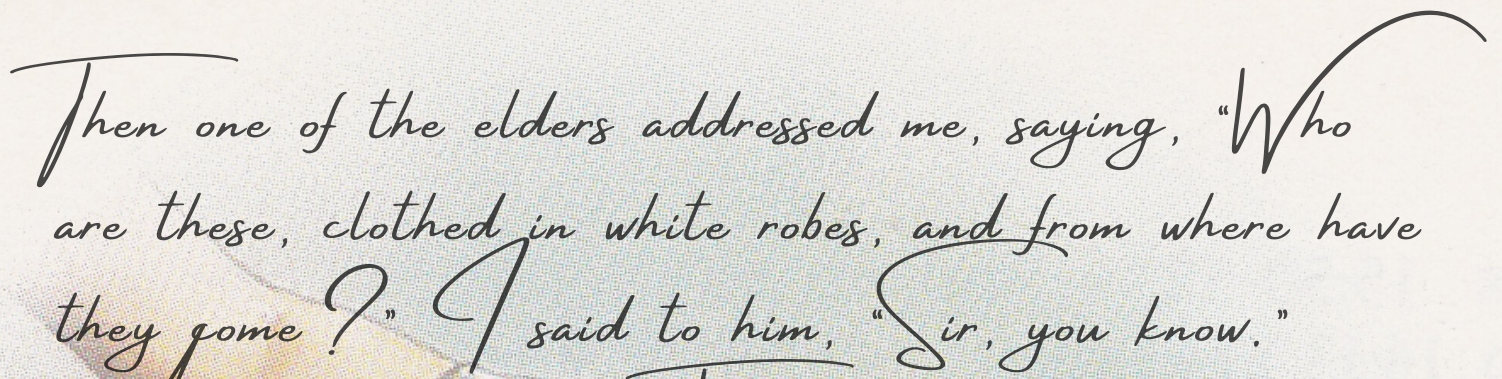 Then one of the elders addressed me, saying, “Who
are these, clothed in white robes, and from where have
they come?” I said to him, “Sir, you know.”